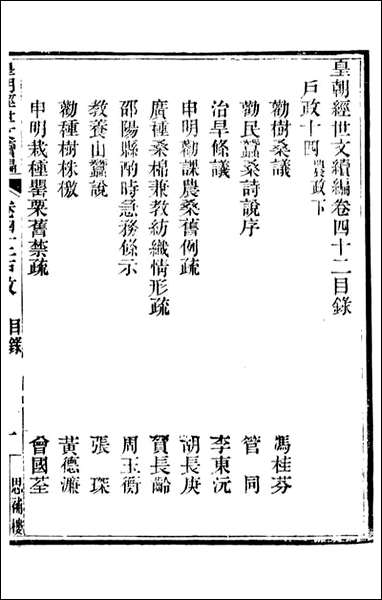 皇朝經世文續編卷四十二目錄
戶政十四農政下
勸樹桑議 馮桂芬
勸民蠶桑詩說序 管同
治旱條議 李東沅
申明勸課農桑舊例疏 胡長庚
廣種桑棉兼教紡織情形疏 賀長齡
邵陽縣酌時急務條示 周玉衡
教養山蠶說 張琛
勸種樹株檄 黃德濂
申明栽種罌粟舊禁疏 曾國荃
皇朝經世文續編 卷四十二戶政 目錄 一 思補樓